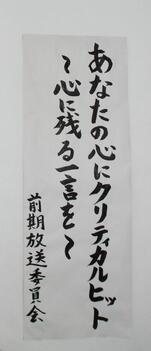 あなたの心にクリティカルヒット
～心に残る一言を～
前期放送委員会